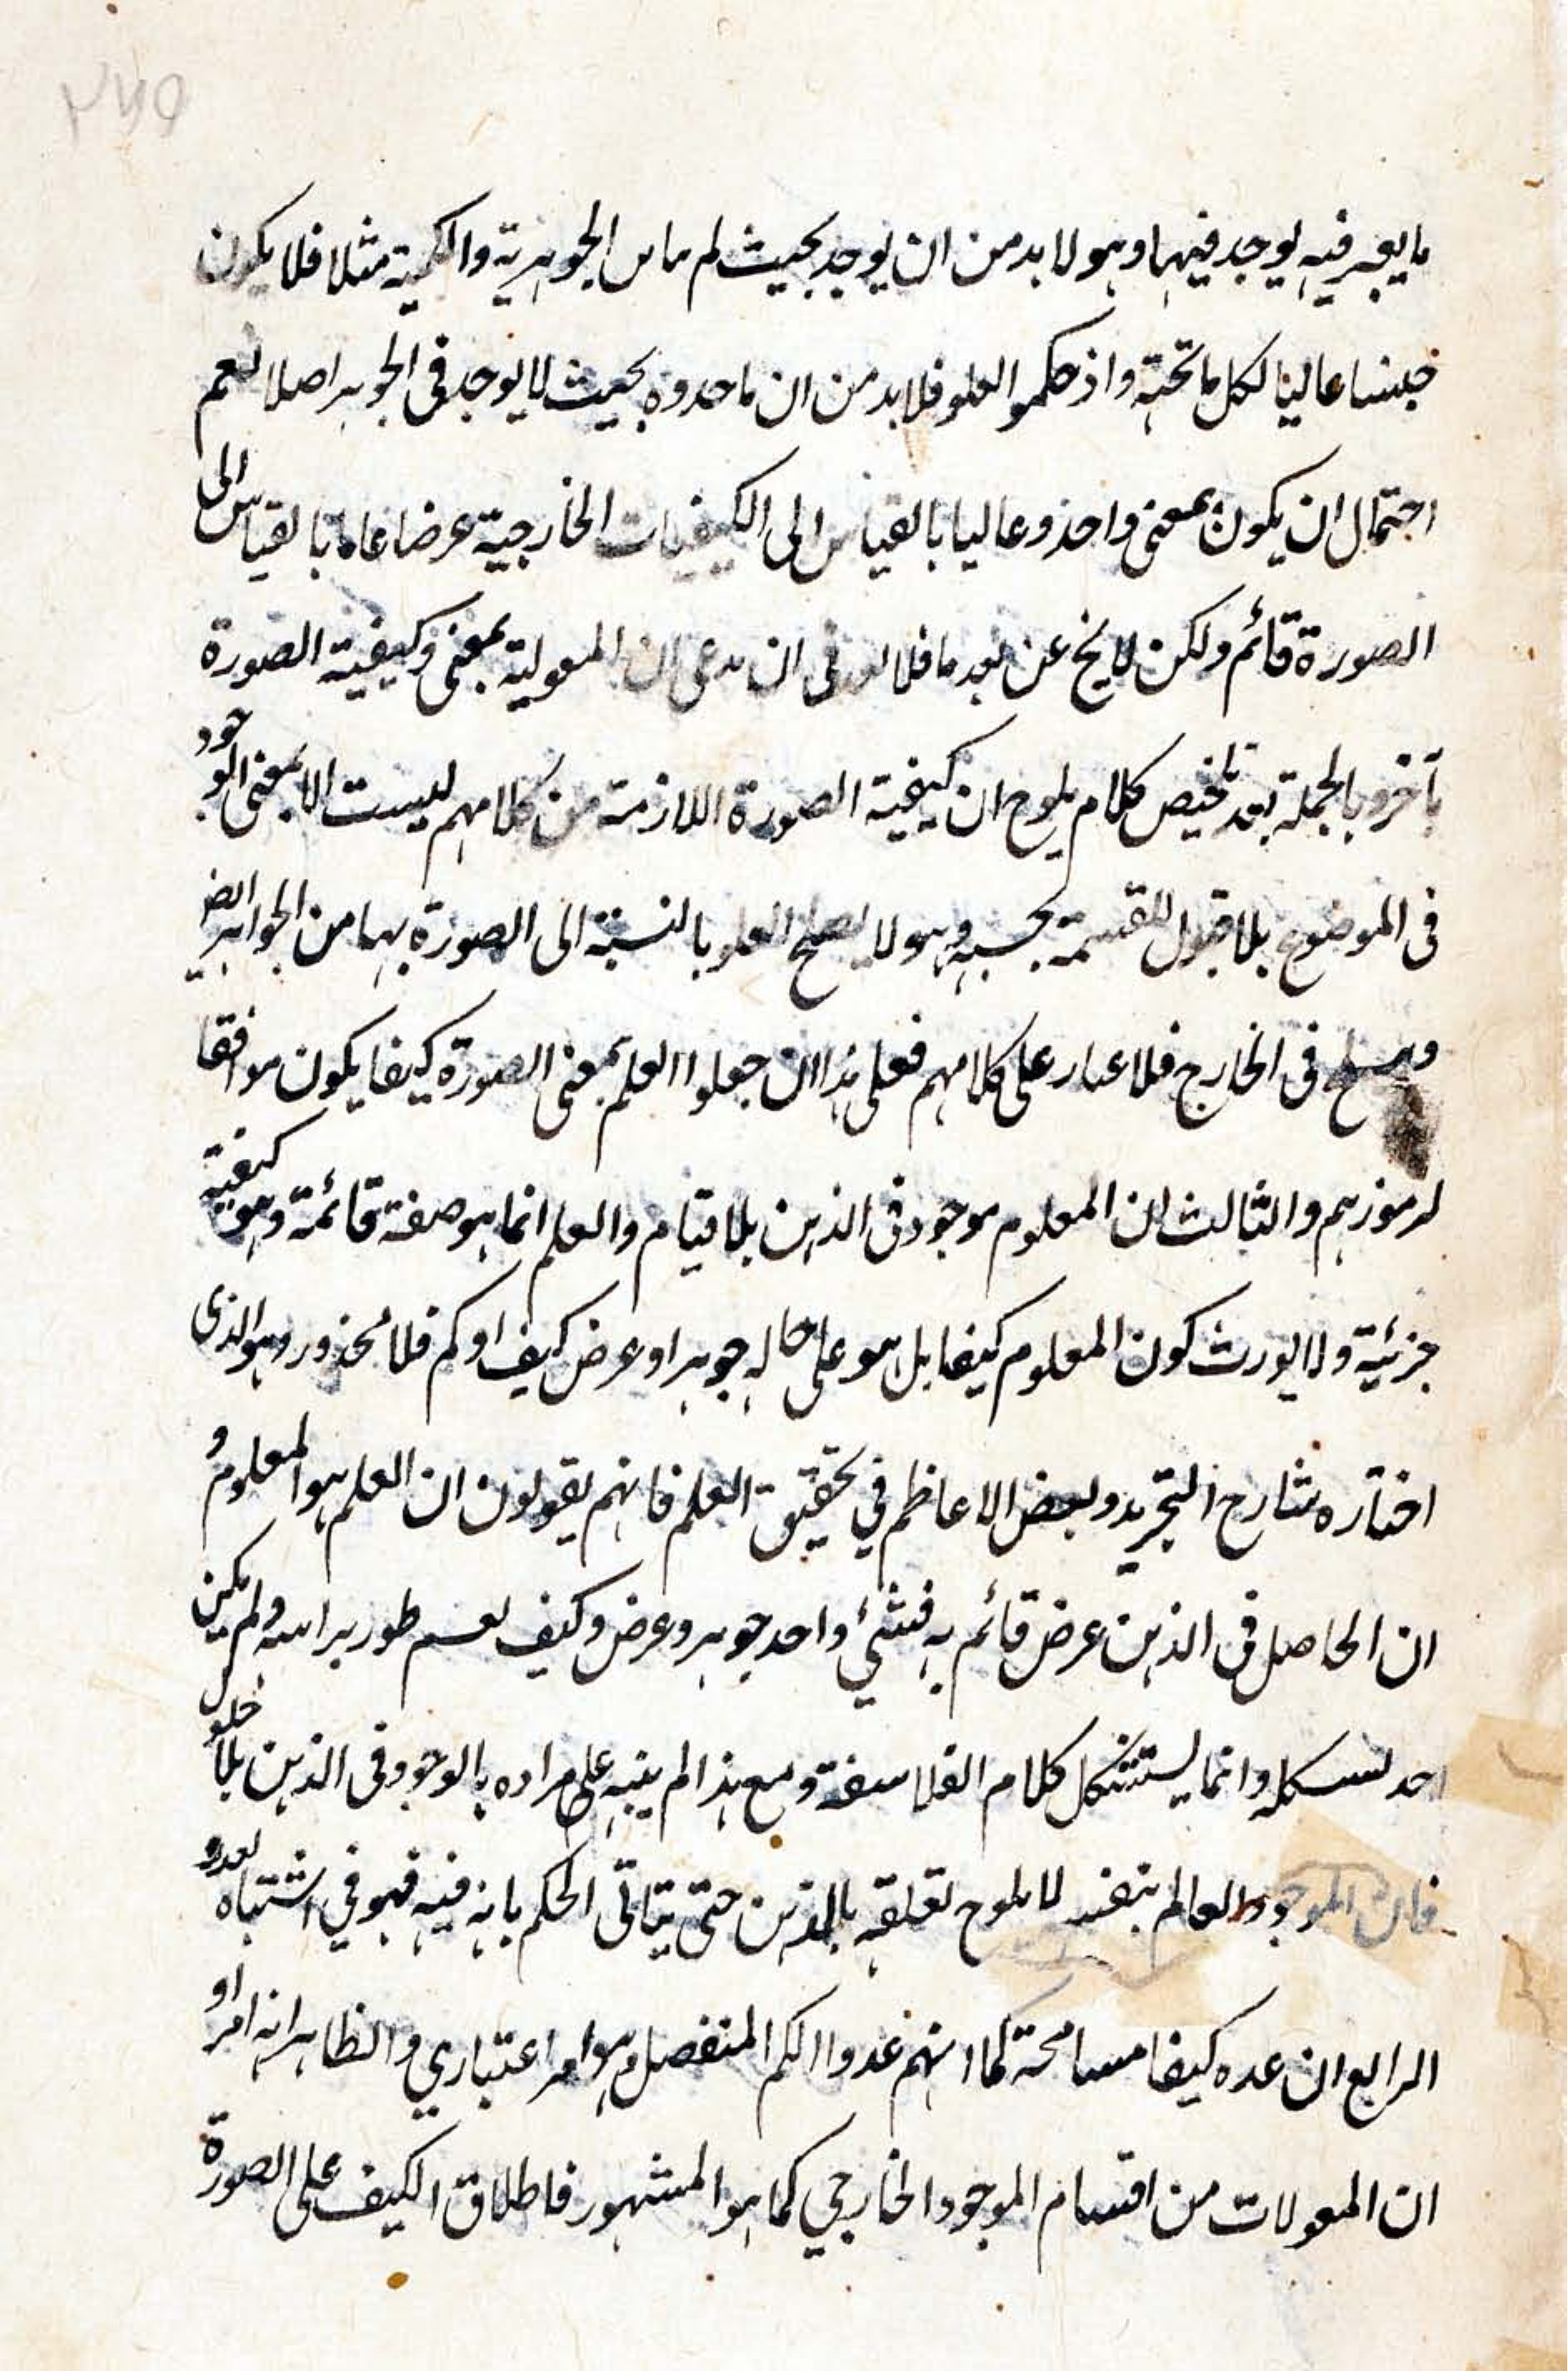 ما يعبر فيه يوجد فيهما وهو لا بد من ان يوجد بحيث لم الجوهرية والكمية مثلا فلا يكون
جنسا عاليا لكل ما تحته واذ حكموا العلو فلا بد من ان ما حدوه بحيث لا يوجد فى الجوهر اصلا نعم
احتمال ان يكون بمعنى واحد وعاليا بالقياس الى الكيفيات الخارجية عرضا عاما بالقياس الى
الصورة قائم ولكن لا يخ عن بعد ما فلا فى ان يدعى ان المقولية بمعنى وكيفية الصورة
بآخر وبالجملة بعد تلخيص كلام يلوح ان كيفية الصورة اللازمة من كلامهم ليست الا بمعنى الوجود
فى الموضوع بلا قبول للقسمة بحسبه وهو لا يصلح العلو بالنسبة الى الصورة بهما من الجواهر ايض
ويصلح فى الخارج فلا غبار على كلامهم فعلى هذا ان جعلوا العلم بمعنى الصورة كيفا يكون موافقا
لرموزهم والثالث ان المعلوم موجود فى الذهن بلا قيام والعلم انما هو صفة قائمة وهو كيفية
جزئية ولا يورث كون المعلوم كيفا بل هو على حاله جوهر او عرض كيف او كم فلا محذور وهو الذى
اختاره شارح التجريد وبعض الاعاظم في تحقيق العلم فانهم يقولون ان العلم هو المعلوم و
ان الحاصل فى الذهن عرض قائم به فشئ واحد جوهر وعرض وكيف نعم طور براسه ولم يكن
احد وانما يستشكل كلام الفلاسفة ومع هذا لم ينبه على مراده بالوجود فى الذهن بلا حلول
فان الموجود العالم بنفسه لا يلوح تعلقه بالذهن حتى يتاتى الحكم بانه فيه فهو في اشتباه بعد و
الرابع ان عده كيفا مسامحة كما انهم عدوا الكم المنفصل وهو امر اعتباري والظاهر انه امر او
ان المقولات من اقسام الموجود الخارجي كما هو المشهور فاطلاق الكيف على الصورة